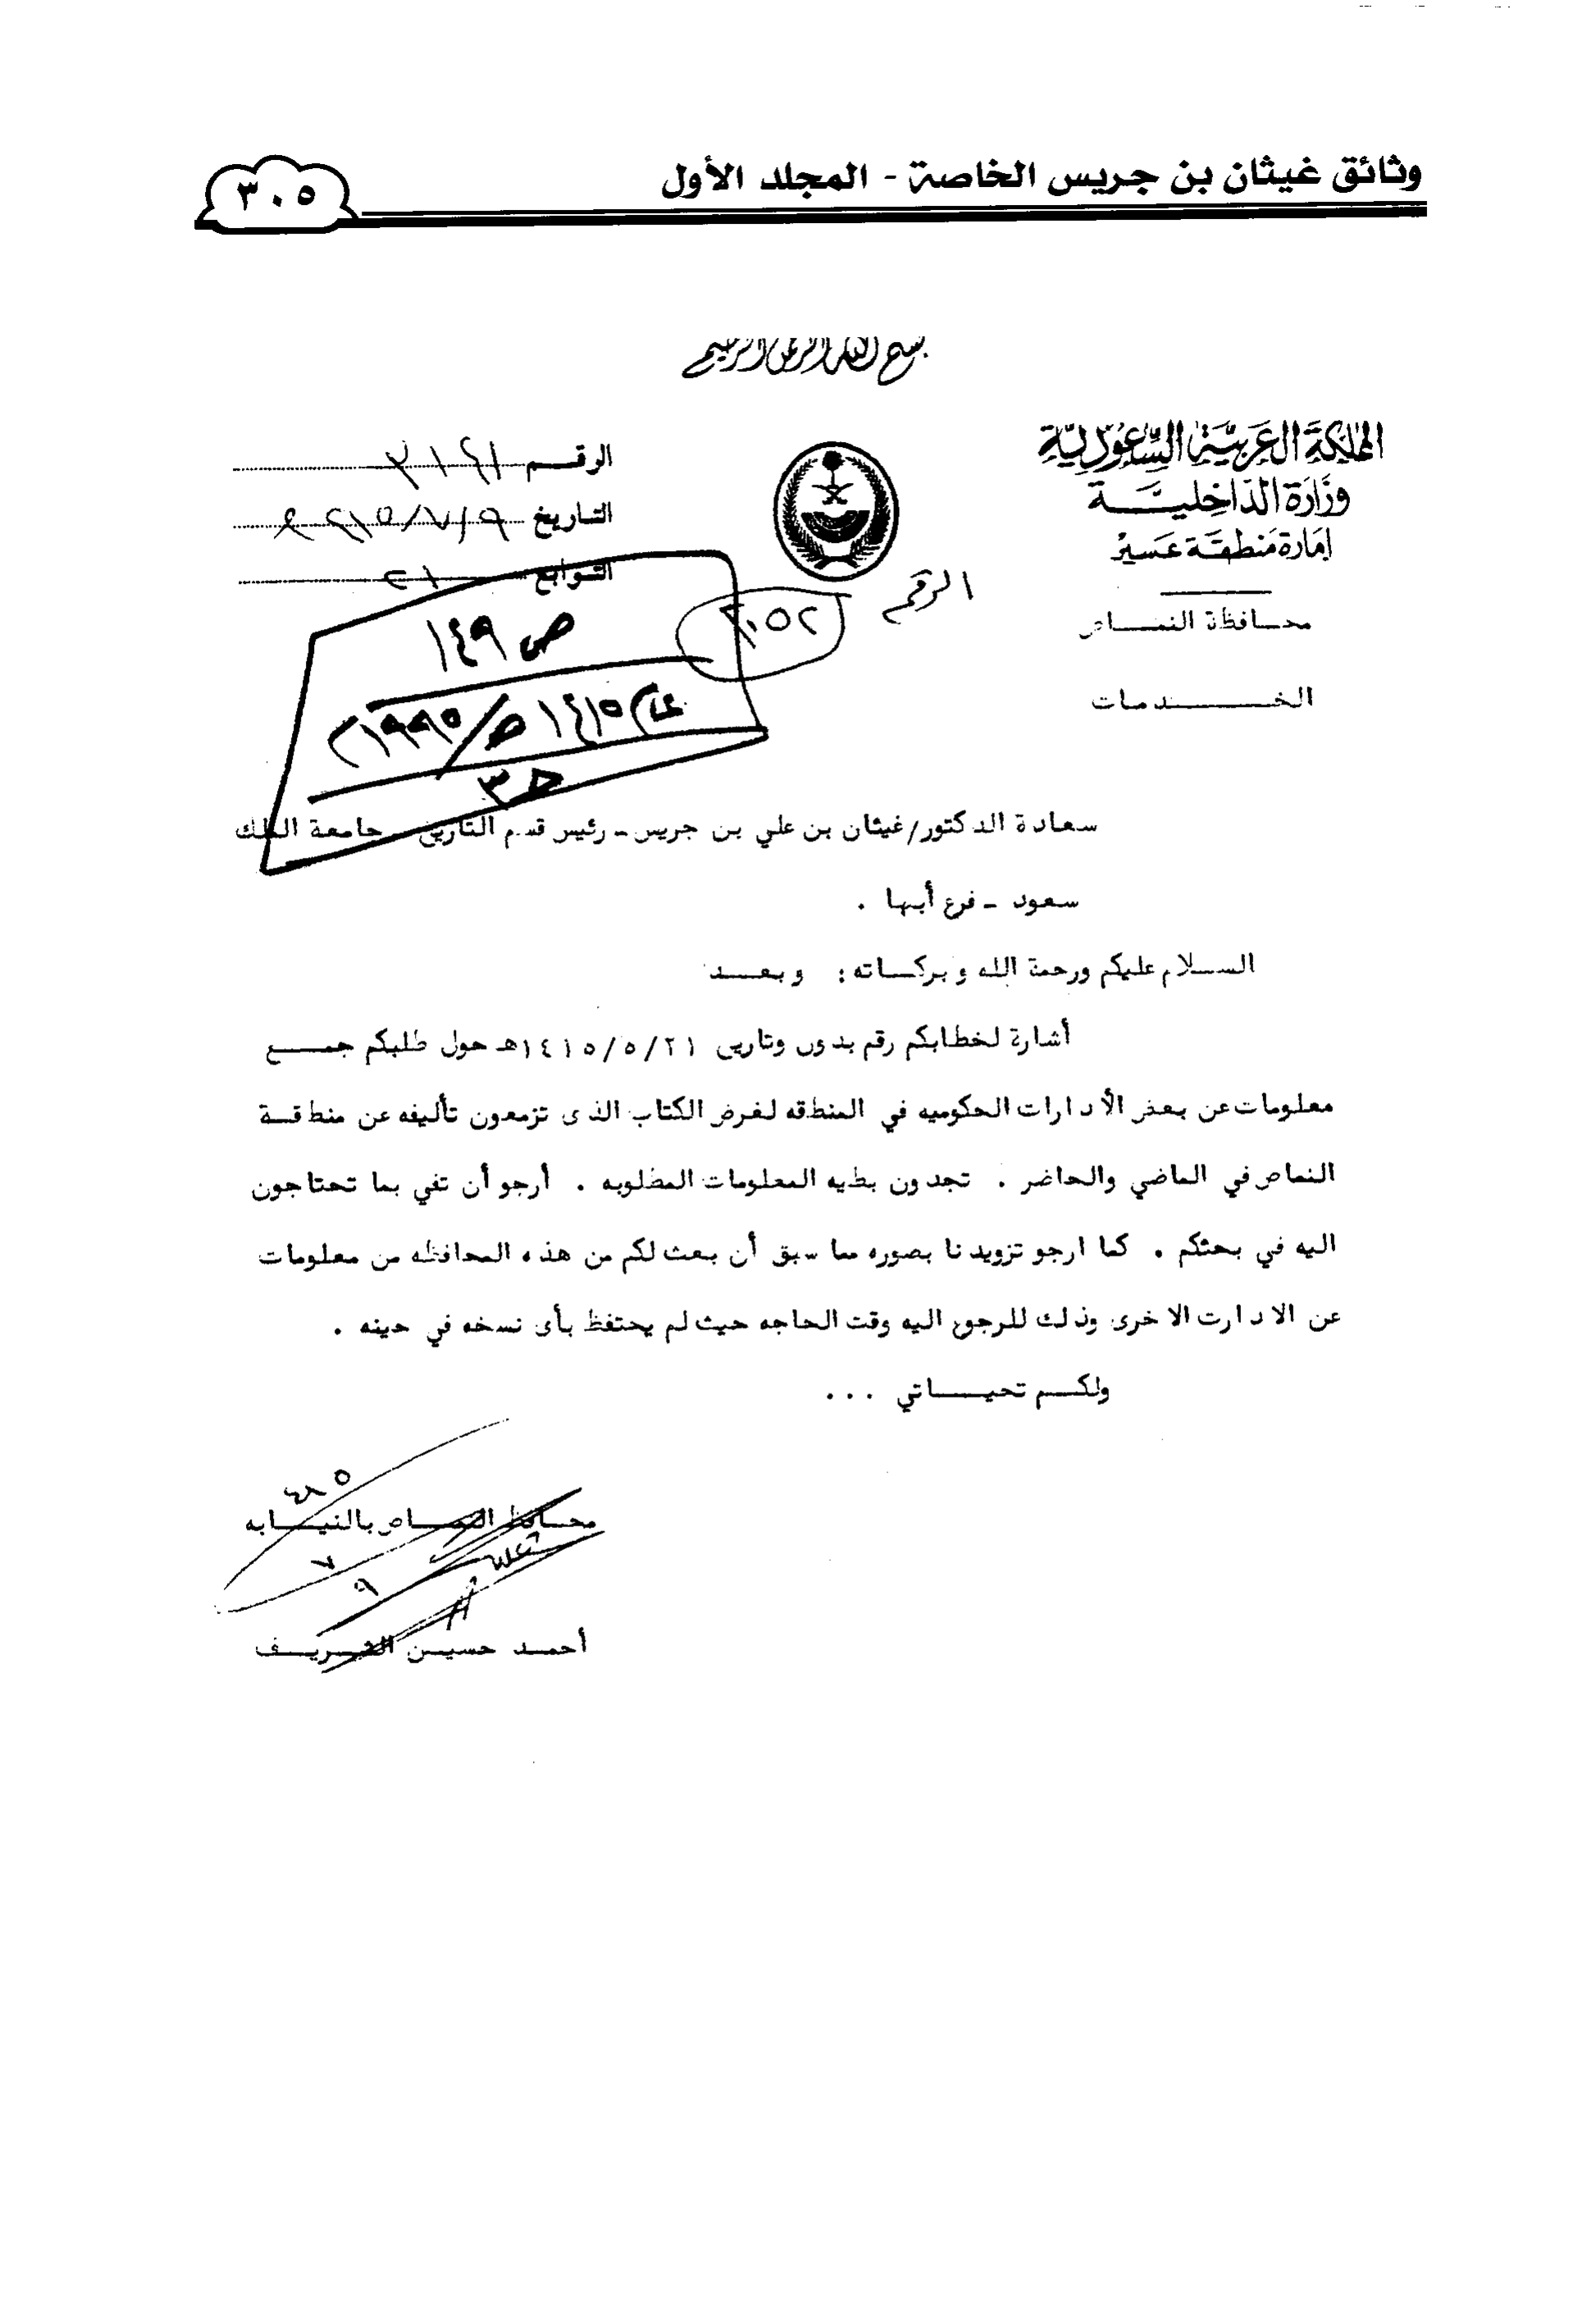 وثائق غيثان بن جريس الخاصة - المجلد الأول
٣٠٥
بسم الله الرحمن الرحيم
المملكة العربية السعودية
وزارة الداخلية
إمارة منطقة عسير
محافظة النماص
الخدمات
الرقم
التاريخ
التوابع
الرقم
ص ١٤٩
عام ١٤١٥هـ/١٩٩٥م
ح٣
سعادة الدكتور/غيثان بن علي بن جريس - رئيس قسم التاريخ - جامعة الملك
سعود - فرع أبها .
السلام عليكم ورحمة الله وبركاته : وبعد
أشارة لخطابكم رقم بدون وتاريخ ١٤١٥/٥/٢١هـ حول طلبكم جمع
معلومات عن بعض الأدارات الحكوميه في المنطقه لغرض الكتاب الذى تزمعون تأليفه عن منطقة
النماص في الماضي والحاضر . تجدون بطيه المعلومات المطلوبه . أرجو أن تفي بما تحتاجون
اليه في بحثكم . كما ارجو تزويدنا بصوره مما سبق أن بعث لكم من هذه المحافظه من معلومات
عن الادارت الاخرى وذلك للرجوع اليه وقت الحاجه حيث لم يحتفظ بأى نسخه في حينه .
ولكم تحياتي ...
محافظ النماص بالنيابه
أحمد حسين الشريف